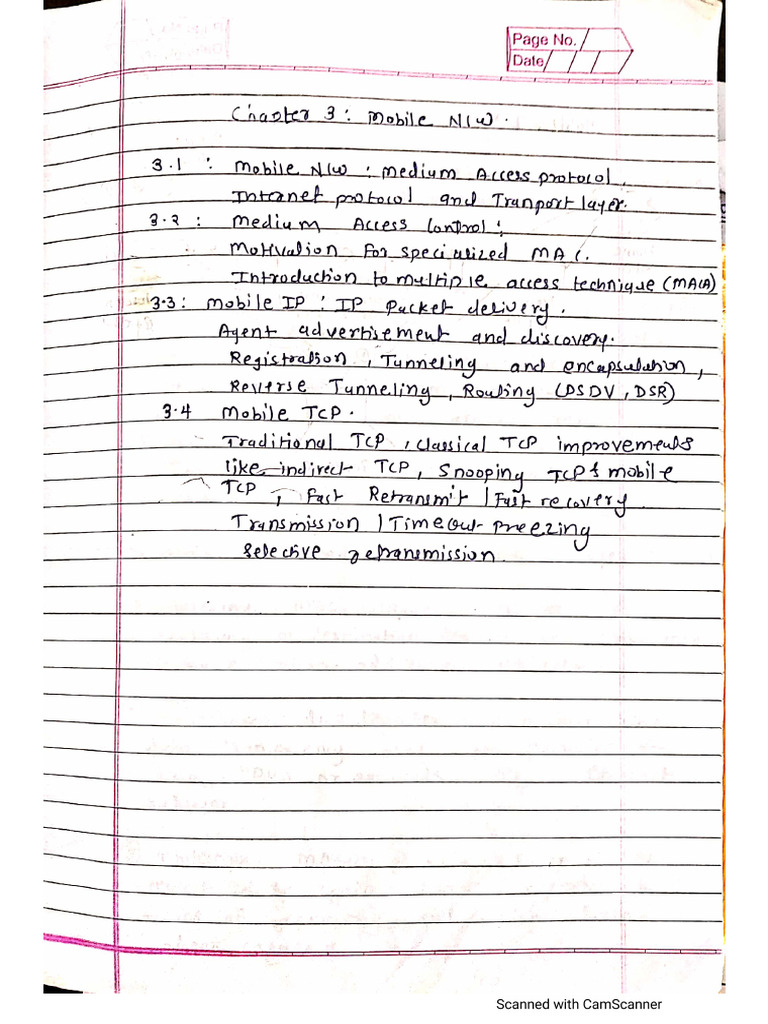 Page No.
Date
Chapter 3 : Mobile N/W.
3.1 : Mobile N/W : Medium Access protocol,
Internet protocol and Transport layer.
3.2 : Medium Access Control :
Motivation for specialized MAC.
Introduction to multiple access technique (MACA)
3.3 : Mobile IP : IP Packet delivery.
Agent advertisement and discovery.
Registration, Tunneling and encapsulation,
Reverse Tunneling, Routing (DSDV, DSR)
3.4 Mobile TCP.
Traditional TCP, Classical TCP improvements
like indirect TCP, Snooping TCP & mobile
TCP, Fast Retransmit / Fast recovery
Transmission / Timeout freezing
Selective retransmission.
Scanned with CamScanner